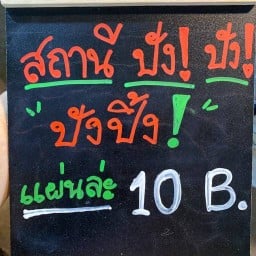 สถานี ปัง! ปัง!
"ปังปิ้ง!
แผ่นล่ะ 10 B.